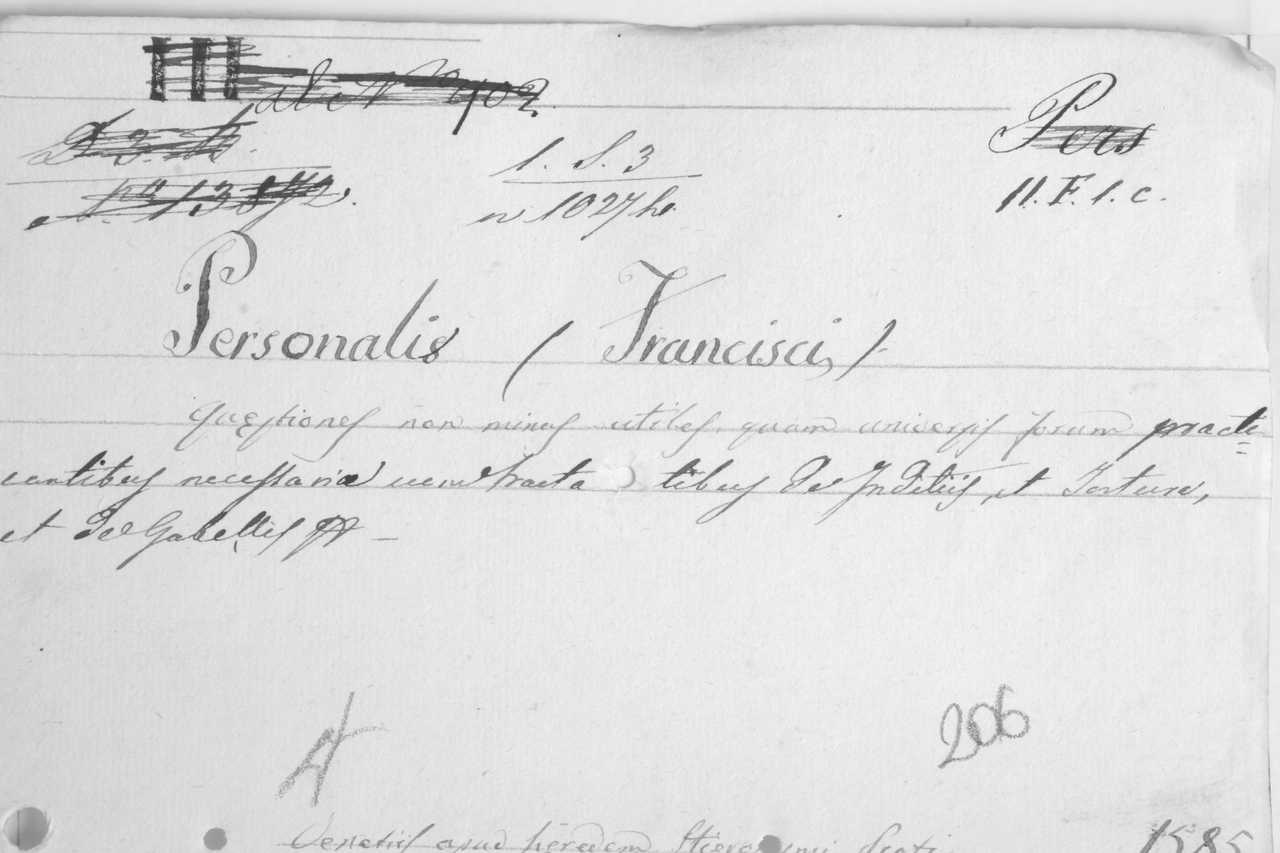 III ab N 902
D. 3. N.
N. 13872.
1. S. 3
n 1027 ho.
Pers
11. F. 1. c.
Personalis (Francisci,)
Quęstiones non minus utiles, quam universis forum practi=
cantibus necessariæ cum tracta tibus De Inditiis, et Tortura,
et De Gabellis
A
206
Venetiis apud heredem Hieronymi Scoti 1585